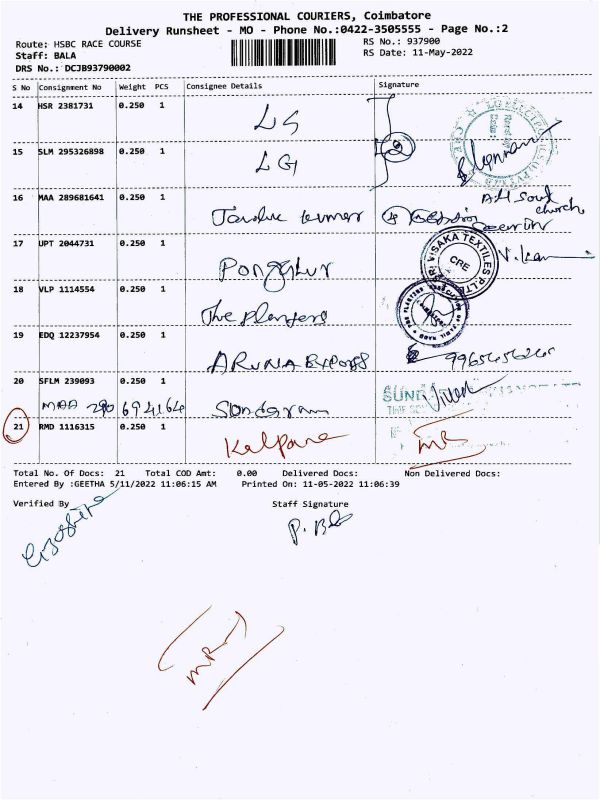 THE PROFESSIONAL COURIERS, Coimbatore
Delivery Runsheet - MO - Phone No.:0422-3505555 - Page No.:2
Route: HSBC RACE COURSE
RS No.: 937900
Staff: BALA
RS Date: 11-May-2022
DRS No.: DCJB93790002
S No Consignment No Weight PCS Consignee Details Signature
14 HSR 2381731 0.250 1
LG
15 SLM 295326898 0.250 1
LG
16 MAA 289681641 0.250 1
All Souls church
kumar
17 UPT 2044731 0.250 1
SRI VISAKA TEXTILES P.LTD
CRE
Pongalur
18 VLP 1114554 0.250 1
The planters
19 EDQ 12237954 0.250 1
ARUNA EXPORTS
20 SFLM 239093 0.250 1
MAA 290694164 Sundaram
21 RMD 1116315 0.250 1
Kalpana
Total No. Of Docs: 21 Total COD Amt: 0.00 Delivered Docs: Non Delivered Docs:
Entered By :GEETHA 5/11/2022 11:06:15 AM Printed On: 11-05-2022 11:06:39
Verified By Staff Signature